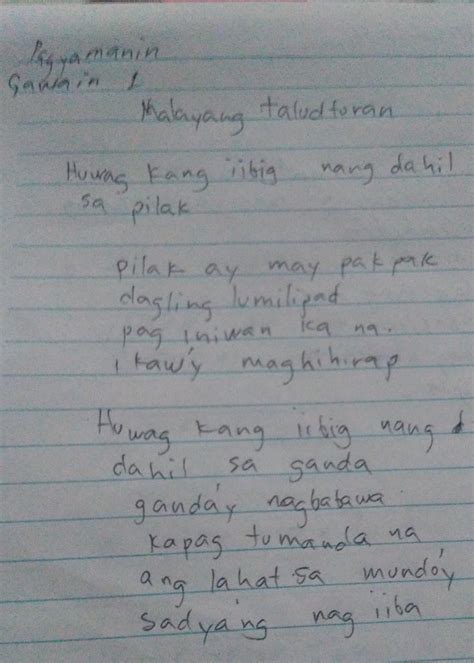 Pagyamanin
Gawain 1
Malayang taludturan
Huwag kang iibig nang dahil
sa pilak
pilak ay may pakpak
dagling lumilipad
pag iniwan ka na.
ikaw'y maghihirap
Huwag kang iibig nang d
dahil sa ganda
ganda'y nagbabawa
kapag tumanda na
ang lahat sa mundo'y
sadya'ng nag iiba